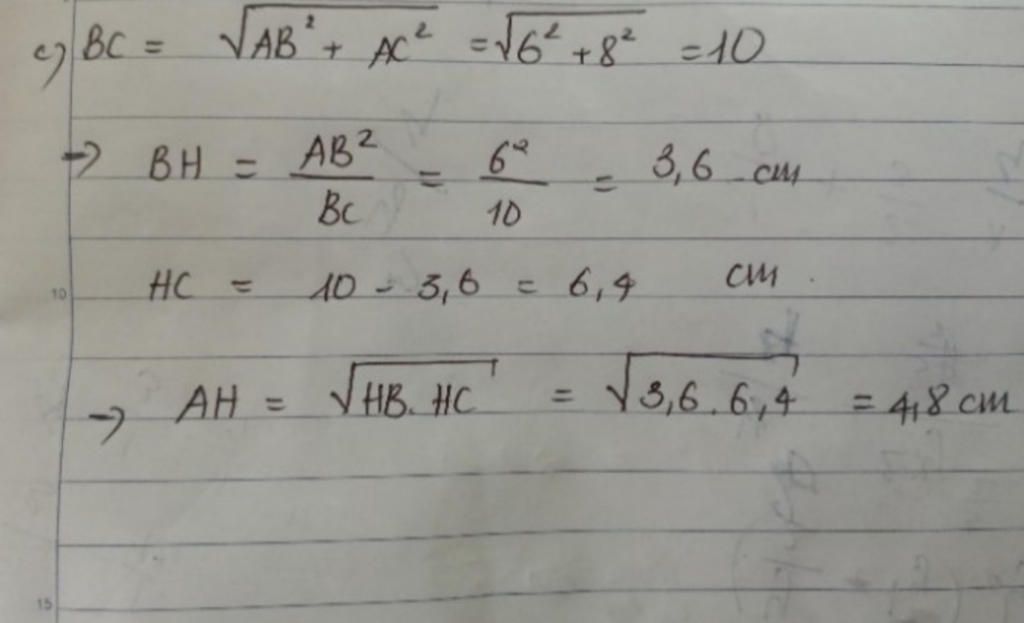 c) BC = √(AB² + AC²) = √(6² + 8²) = 10
→ BH = AB²/BC = 6²/10 = 3,6 cm
10
HC = 10 - 3,6 = 6,4 cm.
→ AH = √(HB.HC) = √(3,6.6,4) = 4,8 cm
15